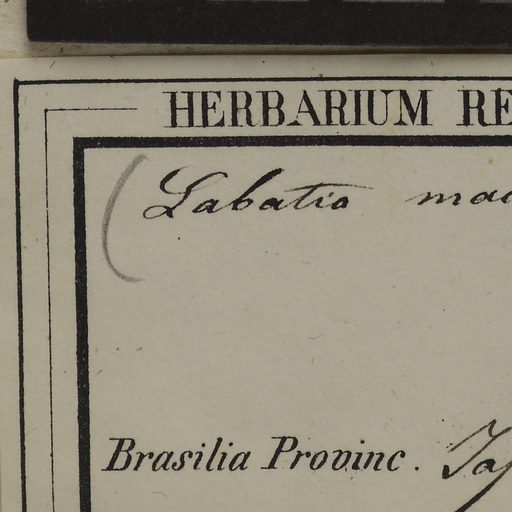 HERBARIUM RE
(Labatia mac
Brasilia Provinc.